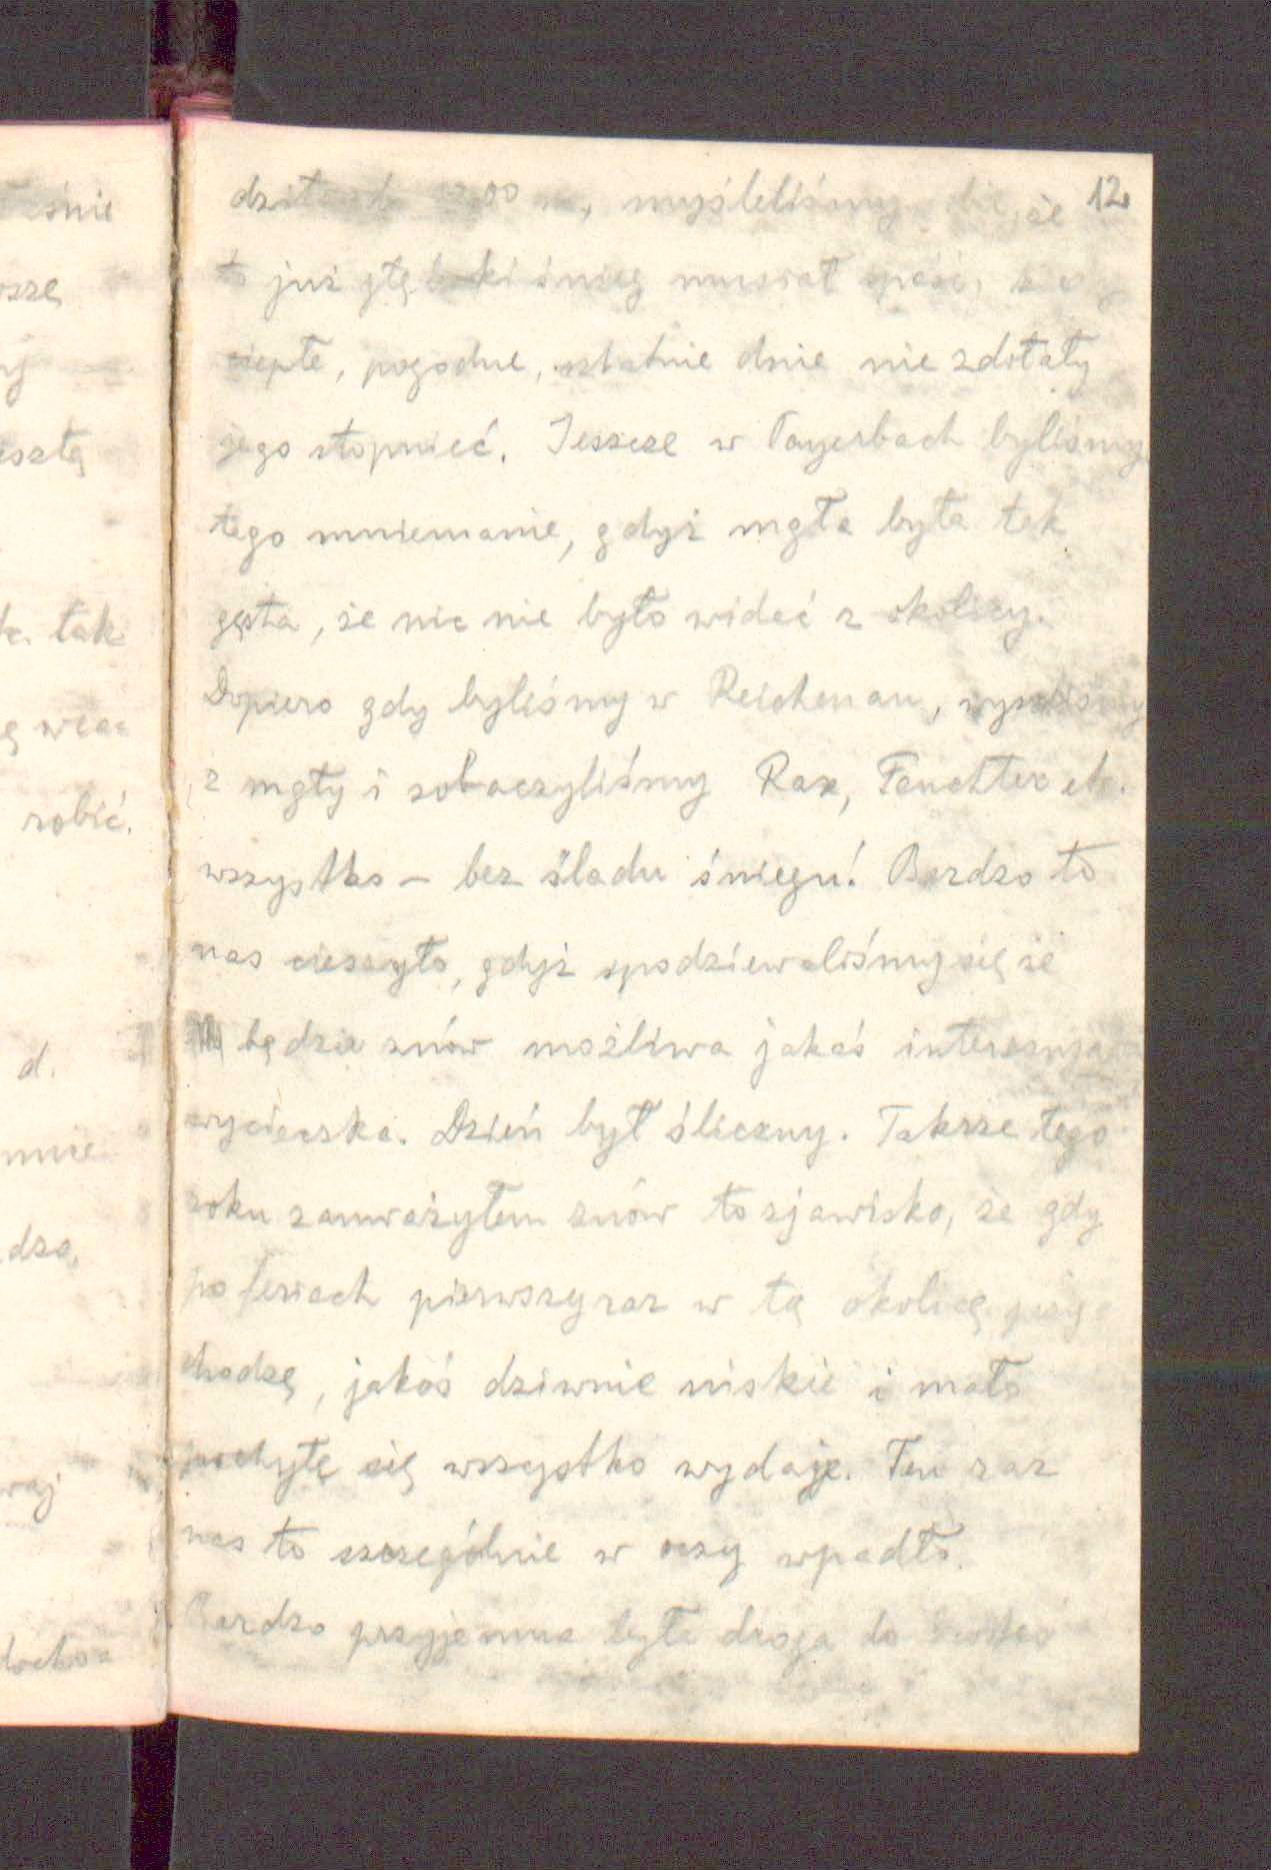 12.
myśleliśmy że
to już głęboki śnieg musiał spaść,
ciepłe, pogodne, ostatnie dnie nie zdołały
jego stopnieć. Jeszcze w Payerbach byliśmy
tego mniemanie, gdyż mgła była tak
gęsta, że nic nie było wideć z okolicy.
Dopiero gdy byliśmy w Reichenau, wyszliśmy
z mgły i zobaczyliśmy Rax, Feuchter etc.
wszystko – bez śladu śniegu! Bardzo to
nas cieszyło, gdyż spodziewaliśmy się że
będzie znów możliwa jakaś interesująca
wycieczka. Dzień był śliczny. Takrze tego
roku zauważyłem znów to zjawisko, że gdy
po feriach pierwszy raz w tą okolicę przy
chodzę, jakoś dziwnie niskie i mało
pochyłe się wszystko wydaje. Ten raz
nas to szczególnie w oczy wpadło.
Bardzo przyjemna była droga do
eśnie
oszę
eszłą
tak
robić.
d.
mnie
dzo,
raj